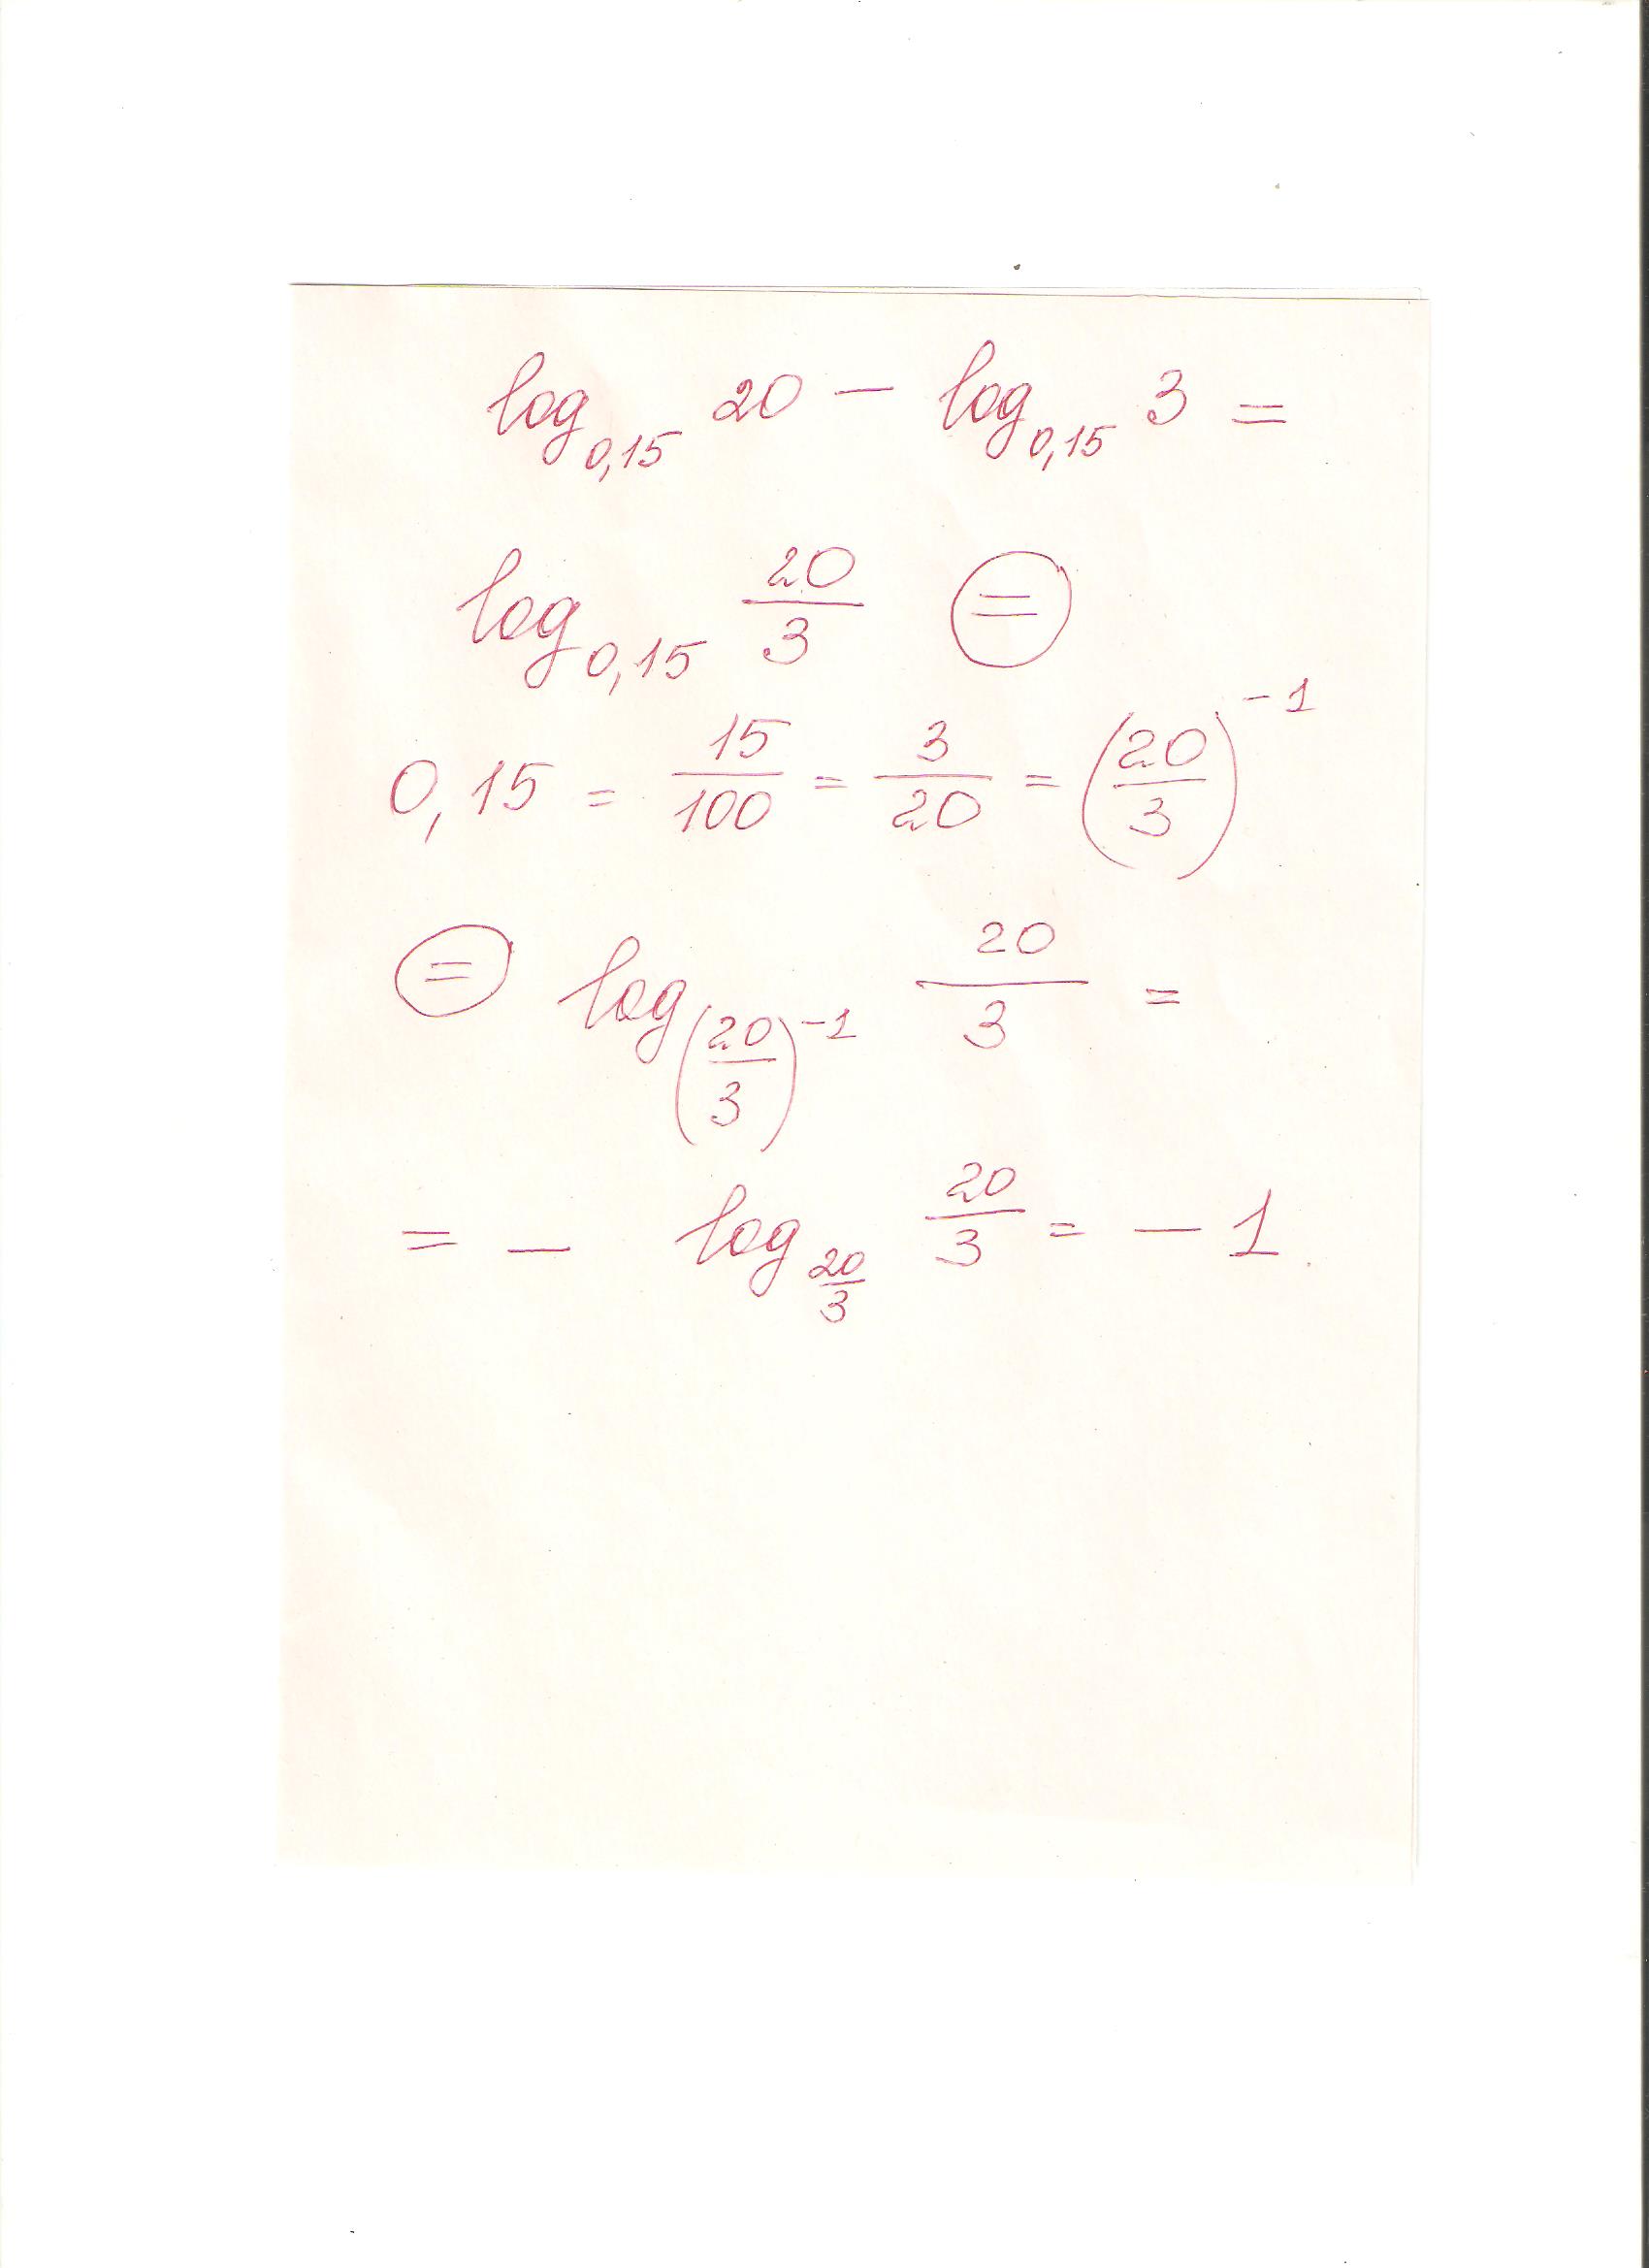 log_{0,15} 20 − log_{0,15} 3 =
log_{0,15} \frac{20}{3} ⊜
0,15 = \frac{15}{100} = \frac{3}{20} = (\frac{20}{3})^{-1}
⊜ log_{(\frac{20}{3})^{-1}} \frac{20}{3} =
= − log_{\frac{20}{3}} \frac{20}{3} = − 1.